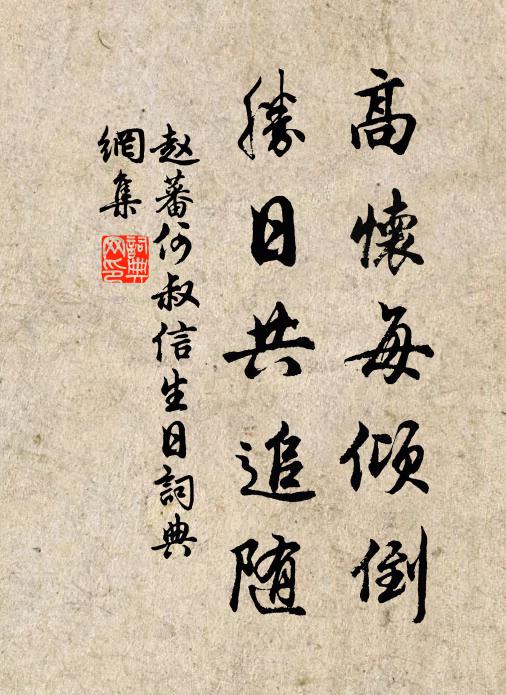 高懷每傾倒
勝日共追随
赵蕃何叔信生日詞典
網集
詞典
网印